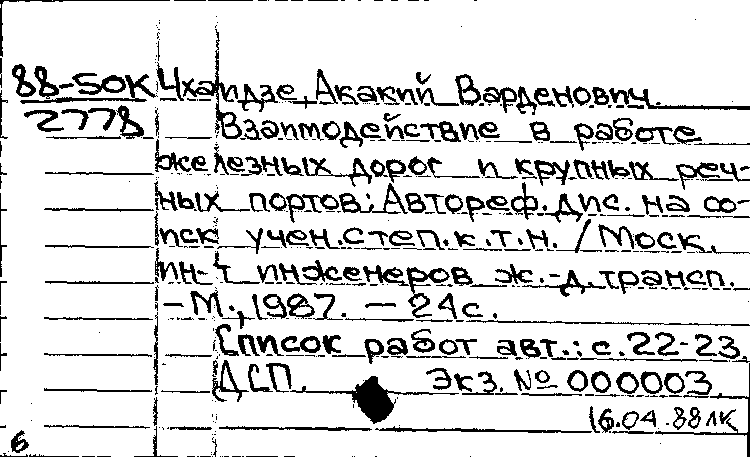 88-50К Чхаидзе, Акакий Варденович.
2778 Взаимодействие в работе
железных дорог и крупных реч-
ных портов: Автореф. дис. на со-
иск учен. степ. к.т.н. / Моск.
ин-т инженеров ж.-д. трансп.
– М., 1987. – 24 с.
Список работ авт.: с. 22-23.
ДСП. Экз. № 000003.
16.04.88 ЛК
6